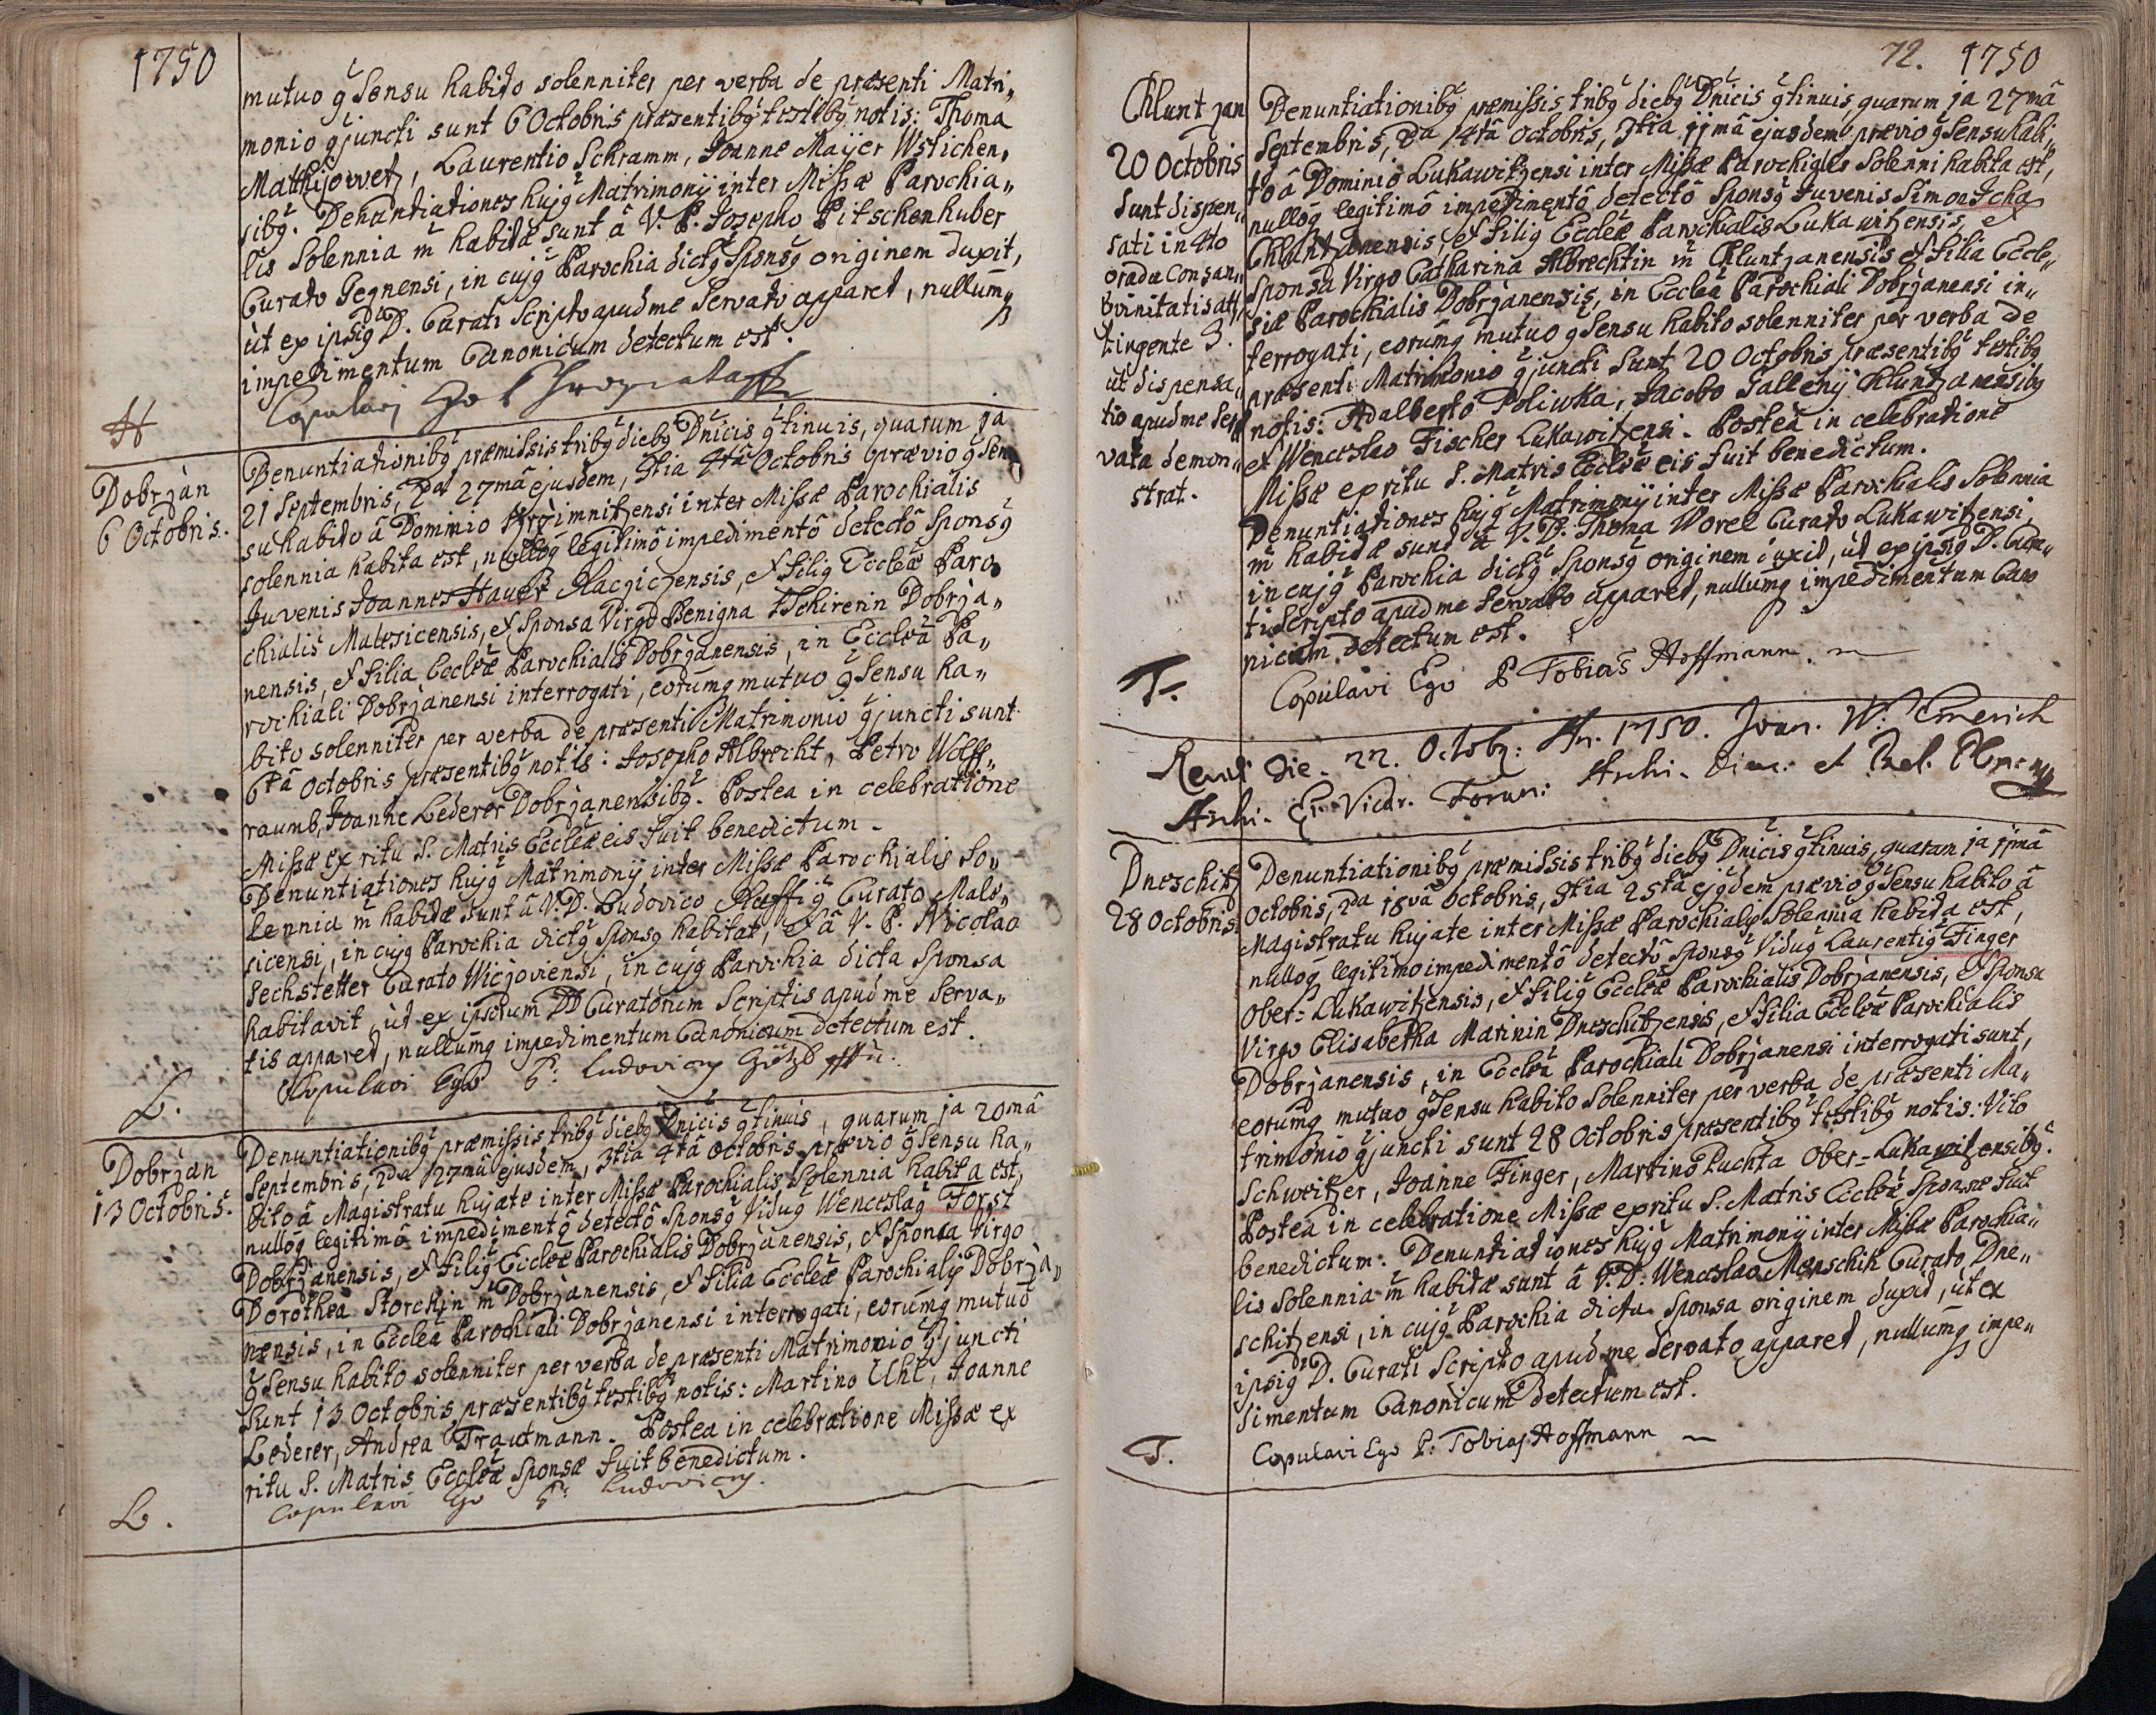 1750
mutuo g̃Sensu habito solenniter per verba de præsenti Matri„
monio g̃juncti sunt 6 Octobris præsentibg testibg notis: Thoma
Matthijowetz, Laurentio Schramm, Joanne Maijer Wstichen„
sibg. Denuntiationes hujg Matrimonij inter Missæ Parochia„
lis Solennia m̃ habitæ sunt â V. P. Josepho Pitschenhuber
Curato Gegnensi, in cujg Parochia dictg Sponsg originem duxit,
ùt ex ipsig D. Curati Scripto apud me Servato apparet, nullumg
impedimentum Canonicum detectum est.
Copulavi
H
Dobrzan
6 Octobris.
Denuntiationibg præmissis tribg diebg Dnicis g̃tinuis, quarum ja
21 Septembris, 2da 27mâ ejusdem, 3tia 4tâ Octobris prævio g̃Sen
su habito â Dominio Krzimnitzensi inter Missæ Parochialis
solennia habita est, nullog legitimô impedimentô detectô Sponsg
Juvenis Joannes Hauer Racziczensis, & Filig Eccleæ Paro
chialis Malesicensis, & Sponsa Virgo Benigna Tschirerin Dobrza„
nensis, & Filia Eccleæ Parochialis Dobrzanensis, in Ecclea Pa„
rochiali Dobrzanensi interrogati, eorumg mutuo g̃Sensu ha„
bito solenniter per verba de præsenti Matrimonio g̃juncti sunt
6tâ Octobris præsentibg notis: Josepho Albrecht, Petro Wolff„
raumb, Joanne Lederer Dobrzanensibg. Postea in celebratione
Missæ ex ritu S. Matris Eccleæ eis fuit benedictum.
Denuntiationes hujg Matrimonij inter Missæ Parochialis So„
lennia m̃ habitæ sunt â V. D. Ludovico Ruffig Curato Male„
sicensi, in cujg Parochia dictg Sponsg habitat, & â V. P. Nicolao
Sechstetter Curato Wiczoviensi, in cujg Parochia dicta Sponsa
habitavit, ùt ex ipsorum DD Curatorum Scriptis apud me Serva„
tis apparet, nullumg impedimentum Canonicum detectum est.
Copulavi Ego P: Ludovicg
L.
Dobrzan
13 Octobris.
Denuntiationibg præmissis tribg diebg Dnicis g̃tinuis, quarum ja 20mâ
Septembris, 2da 27mâ ejusdem, 3tia 4tâ Octobris prævio g̃Sensu ha„
bito â Magistratu hujate inter Missæ Parochialis Solennia habita est,
nullog legitimô impedimentô detectô Sponsg Vidug Wenceslag Forst
Dobrzanensis, & Filig Eccleæ Parochialis Dobrzanensis, & Sponsa Virgo
Dorothea Storckin m̃ Dobrzanensis, & Filia Eccleæ Parochialis Dobrza„
nensis, in Ecclea Parochiali Dobrzanensi interrogati, eorumg mutuo
g̃Sensu habito solenniter per verba de præsenti Matrimonio g̃juncti
Sunt 13 Octobris præsentibg testibg notis: Martino Uhl, Joanne
Lederer, Andrea Trautmann. Postea in celebratione Missæ ex
ritu S. Matris Eccleæ Sponsæ fuit benedictum.
Copulavi Ego P: Ludovicg.
L.
72. 1750
Chluntzan
20 Octobris
Sunt dispen„
sati in 4to
gradu consan„
gvinitatis att„
tingente 3.
ut dispensa„
tio apud me Ser
vata demon„
strat.
Denuntiationibg præmissis tribg diebg Dnicis g̃tinuis, quarum ja 27mâ
Septembris, 2da 4tâ Octobris, 3tia 11mâ ejusdem prævio g̃Sensu habi„
to â Dominio Lukawitzensi inter Missæ Parochialis Solenni habita est,
nullog legitimô impedimentô detectô Sponsg Juvenis Simon Icha
Chluntzanensis, & Filig Eccleæ Parochialis Lukawitzensis, &
Sponsa Virgo Catharina Albrechtin m̃ Chluntzanensis & Filia Eccle„
siæ Parochialis Dobrzanensis, in Ecclea Parochiali Dobrzanensi in„
terrogati, eorumg mutuo g̃Sensu habito solenniter per verba de
præsenti Matrimonio g̃juncti Sunt 20 Octobris præsentibg testibg
notis: Adalberto Poliwka, Jacobo Gallenij Chluntzanensibg
& Wenceslao Fischer Lukawitzensi. Posteà in celebratione
Missæ ex ritu S. Matris Eccleæ eis fuit benedictum.
Denuntiationes hujg Matrimonij inter Missæ Parochialis Solennia
m̃ habitæ sunt â V. D. Thoma Worel Curato Lukawitzensi,
in cujg Parochia dictg Sponsg originem duxit, ùt ex ipsig D. Cura„
ti Scripto apud me Servato apparet, nullumg impedimentum Cano
nicum detectum est.
T.
Copulavi Ego P Tobias Hoffmann.
Die. 22. Octob: An. 1750. Joan. W.
Archi- Vicar. Foran: Archi-
Dneschitz
28 Octobris
Denuntiationibg præmissis tribg diebg Dnicis g̃tinuis, quarum ja 11mâ
Octobris, 2da 18vâ Octobris, 3tia 25tâ ejgdem prævio g̃Sensu habito â
Magistratu hujate inter Missæ Parochialis Solennia habita est,
nullog legitimo impedimentô detectô Sponsg Vidug Laurentig Finger
Ober=Lukawitzensis, & Filig Eccleæ Parochialis Dobrzanensis, & Sponsa
Virgo Elisabetha Marinin Dneschitzensis, & Filia Eccleæ Parochialis
Dobrzanensis, in Ecclea Parochiali Dobrzanensi interrogati sunt,
eorumg mutuo g̃Sensu habito Solenniter per verba de præsenti Ma„
trimonio g̃juncti sunt 28 Octobris præsentibg testibg notis: Vito
Schweitzer, Joanne Finger, Martino Puchta Ober=Lukawitzensibg.
Postea in celebratione Missæ ex ritu S. Matris Eccleæ Sponsæ fuit
benedictum. Denuntiationes hujg Matrimonij inter Missæ Parochia„
lis Solennia m̃ habitæ sunt â V. D: Wenceslao Menschik Curato Dne„
schitzensi, in cujg Parochia dicta Sponsa originem duxit, ùt ex
ipsig D. Curati Scripto apud me Servato apparet, nullumg impe„
dimentum Canonicum detectum est.
T.
Copulavi Ego P: Tobias Hoffmann